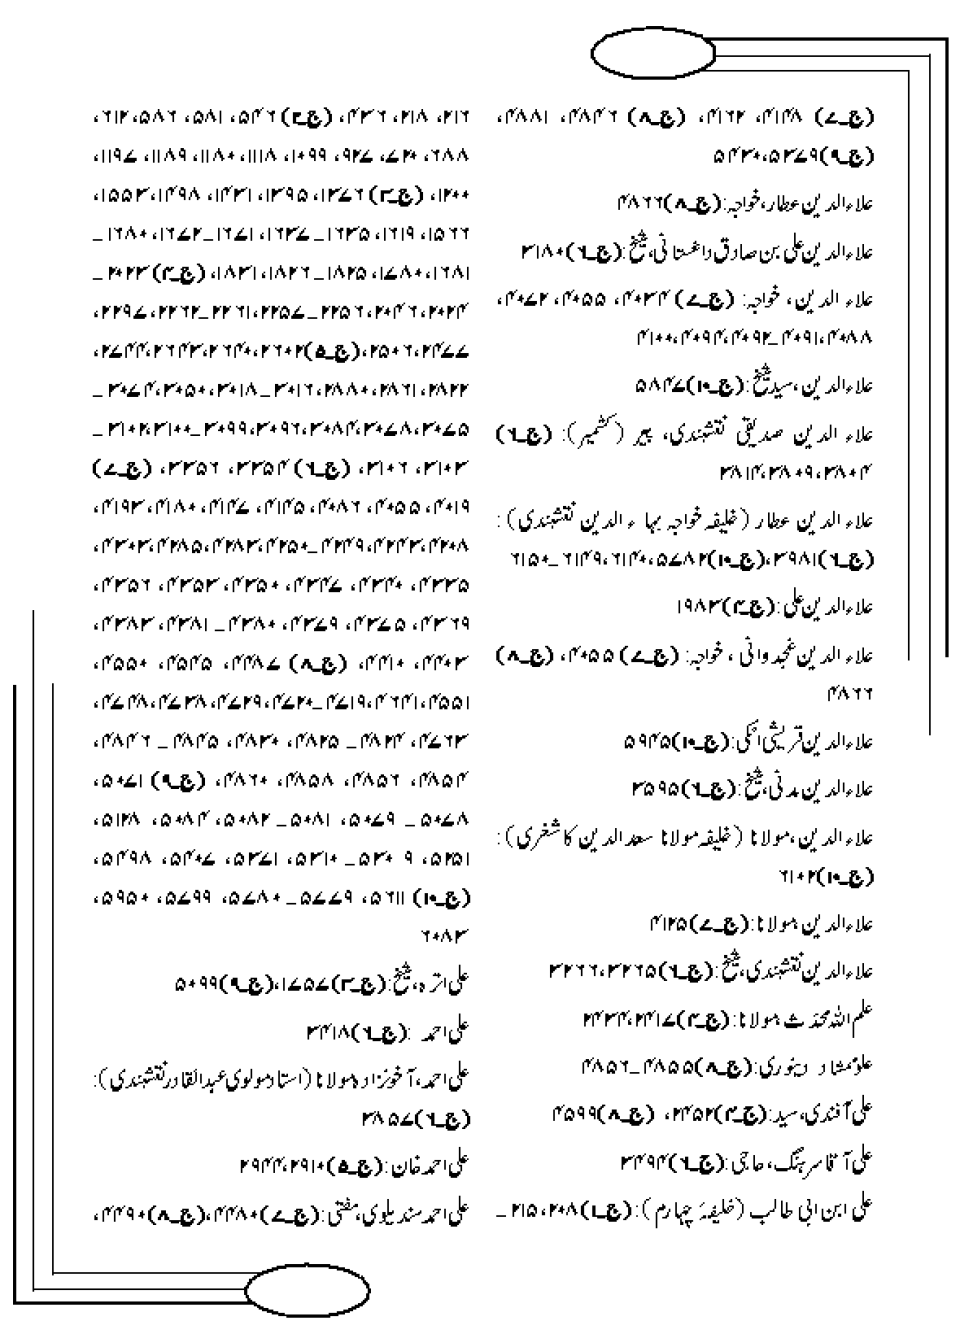 (ج۔۷) ۴۱۴۸، ۴۱۶۲، (ج۔۸) ۴۸۴۶، ۴۸۸۱،
(ج۔۹)۵۳۷۹، ۵۴۳۰
علاءالدین عطار، خواجہ:(ج۔۸)۴۸۶۶
علاءالدین علی بن صادق داغستانی، شیخ:(ج۔۶)۳۱۸۰
علاء الدین، خواجہ: (ج۔۷) ۴۰۳۴، ۴۰۵۵، ۴۰۷۲،
۴۰۸۸، ۴۰۹۱۔۴۰۹۲، ۴۰۹۴، ۴۱۰۰
علاءالدین، سید شیخ:(ج۔۱۰)۵۸۴۷
علاء الدین صدیقی نقشبندی، پیر (کشمیر): (ج۔۶)
۳۸۰۴، ۳۸۰۹، ۳۸۱۴
علاءالدین عطار (خلیفہ خواجہ بہاء الدین نقشبندی):
(ج۔۶)۳۹۸۱، (ج۔۱۰)۵۷۸۲، ۶۱۴۰، ۶۱۴۹۔۶۱۵۰
علاءالدین علی:(ج۔۳)۱۹۸۳
علاءالدین غجدوانی، خواجہ: (ج۔۷)۴۰۵۵، (ج۔۸)
۴۸۶۶
علاءالدین قریشی اٹکی:(ج۔۱۰)۵۹۴۵
علاءالدین مدنی، شیخ:(ج۔۶)۳۵۹۵
علاءالدین، مولانا (خلیفہ مولانا سعد الدین کاشغری):
(ج۔۱۰)۶۱۰۲
علاءالدین، مولانا:(ج۔۷)۴۱۲۵
علاءالدین نقشبندی، شیخ:(ج۔۶)۳۲۶۵، ۳۲۶۶
علم اللہ محدث، مولانا:(ج۔۴)۲۴۱۷، ۲۴۳۴
علو ممشاد دینوری:(ج۔۸)۴۸۵۵۔۴۸۵۶
علی آفندی، سید:(ج۔۴)۲۴۵۲، (ج۔۸)۴۵۹۹
علی آقا سرہنگ، حاجی:(ج۔۶)۳۴۹۴
علی ابن ابی طالب (خلیفۂ چہارم):(ج۔۱)۲۰۸، ۲۱۵۔
۲۱۶، ۲۱۸، ۴۳۶، (ج۔۲)۵۴۶، ۵۸۱، ۵۸۶، ۶۱۲،
۶۸۸، ۷۲۰، ۹۲۷، ۱۰۹۹، ۱۱۱۸، ۱۱۸۰، ۱۱۸۹، ۱۱۹۷،
۱۲۰۰، (ج۔۳)۱۳۷۶، ۱۳۹۵، ۱۴۳۱، ۱۴۹۸، ۱۵۵۳،
۱۵۶۶، ۱۶۱۹، ۱۶۳۵۔۱۶۳۷، ۱۶۷۱۔۱۶۷۲، ۱۶۸۰۔
۱۶۸۱، ۱۷۸۰، ۱۸۲۵۔۱۸۲۶، ۱۸۳۱، (ج۔۴)۲۰۲۳۔
۲۰۲۴، ۲۰۴۶، ۲۲۵۶۔۲۲۵۷، ۲۲۶۱۔۲۲۶۲، ۲۲۹۷،
۲۴۷۷، ۲۵۰۶، (ج۔۵)۲۶۰۲، ۲۶۴۰، ۲۶۴۳، ۲۷۴۴،
۲۸۲۲، ۲۸۶۱، ۲۸۸۰، ۳۰۱۶۔۳۰۱۸، ۳۰۵۰، ۳۰۷۴۔
۳۰۷۵، ۳۰۷۸، ۳۰۸۴، ۳۰۹۶، ۳۰۹۹۔۳۱۰۰، ۳۱۰۲۔
۳۱۰۳، ۳۱۰۶، (ج۔۶)۳۳۵۴، ۳۳۵۶، (ج۔۷)
۴۰۱۹، ۴۰۵۵، ۴۰۸۶، ۴۱۴۵، ۴۱۴۷، ۴۱۸۰، ۴۱۹۳،
۴۲۰۸، ۴۲۴۳، ۴۲۴۹۔۴۲۵۰، ۴۲۸۳، ۴۲۸۵، ۴۳۰۳،
۴۳۳۵، ۴۳۴۰، ۴۳۴۷، ۴۳۵۰، ۴۳۵۳، ۴۳۵۶،
۴۳۶۹، ۴۳۷۵، ۴۳۷۹، ۴۳۸۰۔۴۳۸۱، ۴۳۸۳،
۴۴۰۳، ۴۴۱۰، (ج۔۸) ۴۴۸۷، ۴۵۴۵، ۴۵۵۰،
۴۵۵۱، ۴۶۴۱، ۴۷۱۹۔۴۷۲۰، ۴۷۲۹، ۴۷۳۸، ۴۷۴۸،
۴۷۶۳، ۴۸۲۴۔۴۸۲۵، ۴۸۳۰، ۴۸۴۵۔۴۸۴۶،
۴۸۵۴، ۴۸۵۶، ۴۸۵۸، ۴۸۶۰، (ج۔۹) ۵۰۷۱،
۵۰۷۸۔۵۰۷۹، ۵۰۸۱۔۵۰۸۲، ۵۰۸۴، ۵۱۲۸،
۵۲۵۱، ۵۳۰۹۔۵۳۱۰، ۵۳۷۱، ۵۴۰۷، ۵۴۹۸،
(ج۔۱۰) ۵۶۱۱، ۵۷۷۹۔۵۷۸۰، ۵۷۹۹، ۵۹۵۰،
۶۰۸۳
علی اترہ، شیخ:(ج۔۳)۱۷۵۷، (ج۔۹)۵۰۹۹
علی احمد :(ج۔۶)۳۴۱۸
علی احمد، آخونزادہ مولانا (استاد مولوی عبدالقادر نقشبندی):
(ج۔۶)۳۸۵۷
علی احمد خان:(ج۔۵)۲۹۱۰، ۲۹۴۴
علی احمد سندیلوی، مفتی:(ج۔۷)۴۴۸۰، (ج۔۸)۴۴۹۰،